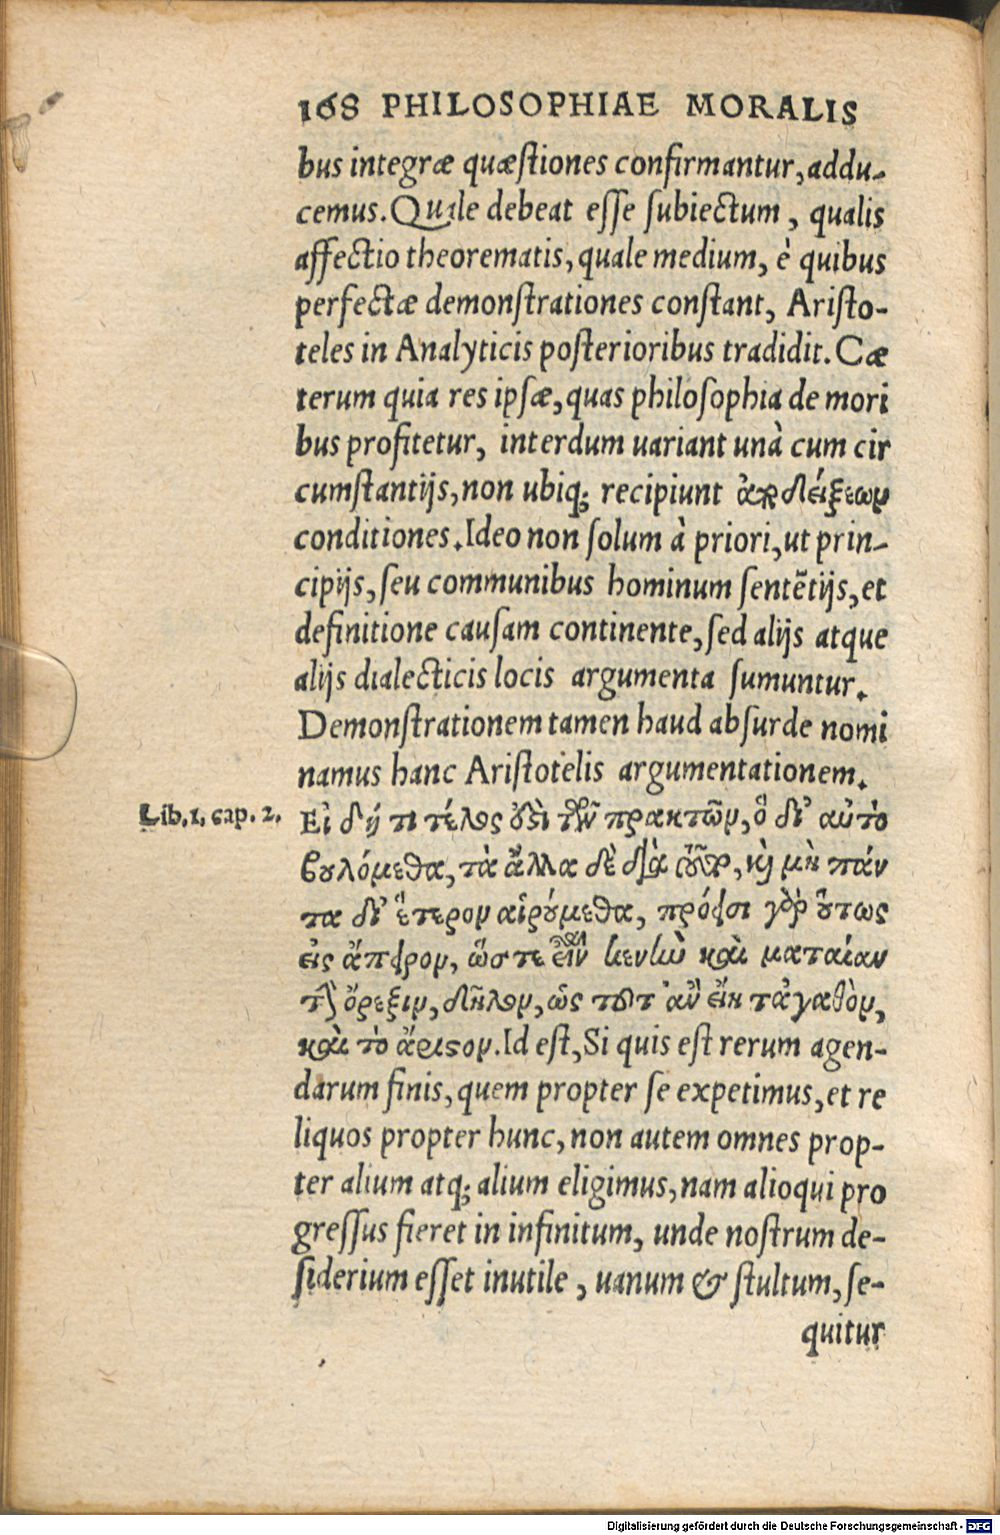 168 PHILOSOPHIAE MORALIS
bus integræ quæſtiones confirmantur, addu-
cemus. Quale debeat eſſe ſubiectum, qualis
affectio theorematis, quale medium, è quibus
perfectæ demonſtrationes conſtant, Ariſto-
teles in Analyticis poſterioribus tradidit. Cæ
terum quia res ipſæ, quas philoſophia de mori
bus profitetur, interdum uariant unà cum cir
cumſtantijs, non ubiq; recipiunt ἀποδείξεων
conditiones. Ideo non ſolum à priori, ut prin-
cipijs, ſeu communibus hominum ſentẽtijs, et
definitione cauſam continente, ſed alijs atque
alijs dialecticis locis argumenta ſumuntur.
Demonſtrationem tamen haud abſurde nomi
namus hanc Ariſtotelis argumentationem.
Lib. 1. cap. 2.
Εἰ δή τι τέλος ὅτι τῶν πρακτῶν, ὃ δι' αὑτὸ
βουλόμεθα, τὰ ἄλλα δὲ διὰ τοῦτο, καὶ μὴ πάν
τα δι' ἕτερον αἱρούμεθα, πρόεισι γὰρ οὕτως
εἰς ἄπειρον, ὥστε εἶναι κενὴν καὶ ματαίαν
τὴν ὄρεξιν, δῆλον, ὡς τοῦτ' ἂν εἴη τἀγαθὸν,
καὶ τὸ ἄριστον. Id eſt, Si quis eſt rerum agen-
darum finis, quem propter ſe expetimus, et re
liquos propter hunc, non autem omnes prop-
ter alium atq; alium eligimus, nam alioqui pro
greſſus fieret in infinitum, unde noſtrum de-
ſiderium eſſet inutile, uanum & ſtultum, ſe-
quitur
Digitalisierung gefördert durch die Deutsche Forschungsgemeinschaft - DFG